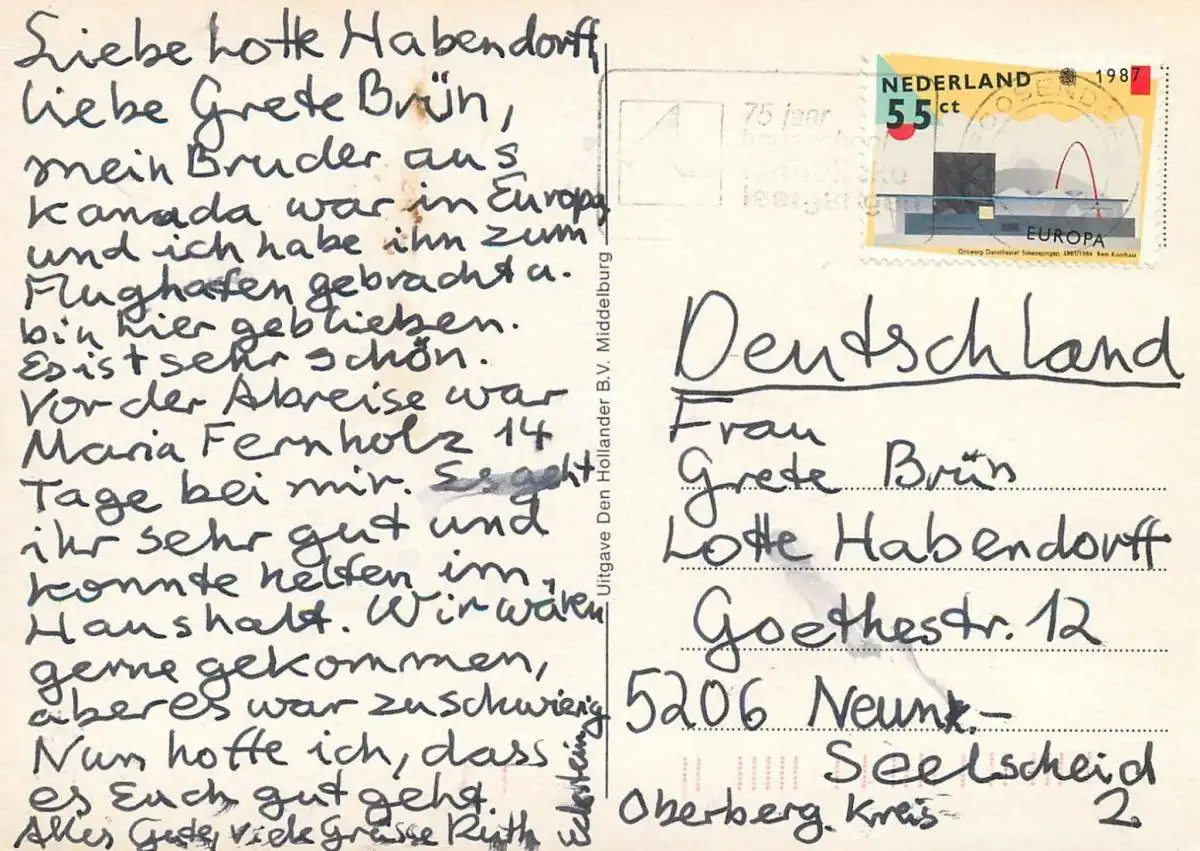 Liebe Lotte Habendorff
liebe Grete Brün,
mein Bruder aus
Kanada war in Europa
und ich habe ihn zum
Flughafen gebracht u.
bin hier geblieben.
Es ist sehr schön.
Vor der Abreise war
Maria Fernholz 14
Tage bei mir. Es geht
ihr sehr gut und
konnte helfen im
Haushalt. Wir wären
gerne gekommen,
aber es war zu schwierig
Nun hoffe ich, dass
es Euch gut geht.
Alles Gute, viele Grüsse Ruth
Eckstein
Uitgave Den Hollander B.V. Middelburg
75 jaar
NEDERLAND 1987
55 ct
EUROPA
ROOSENDAAL
Deutschland
Frau
Grete Brün
Lotte Habendorff
Goethestr. 12
5206 Neunk.-
Seelscheid
Oberberg. Kreis 2.